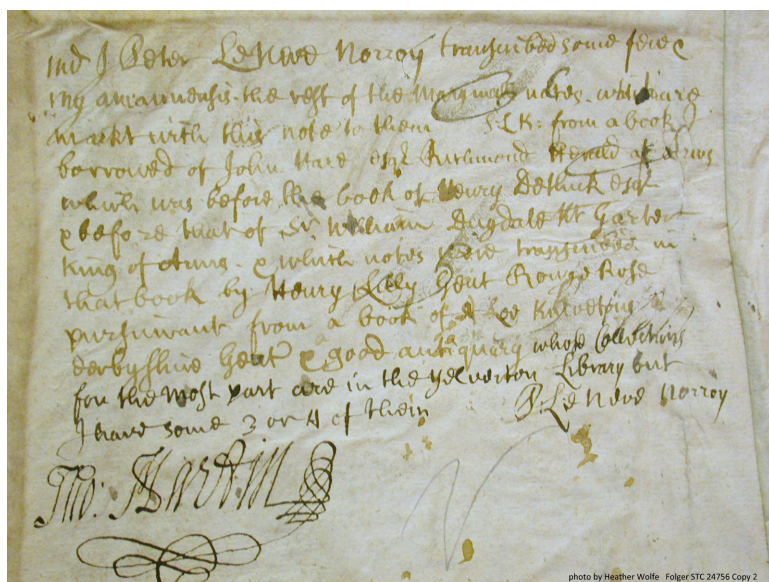 md J Peter Le Neve Norroy transcribed some few &
my amanuensis the rest of the Marginall notes which are
markt with this note to them S.L.K: from a book I
borrowed of John Hare esqr Richmond Herald of arms
which was before the book of Henry Dethick esqr
& before that of Sr William Dugdale Kt Garter
King of Arms & which notes were transcribed in
that book by Henry Lilly Gent Rouge Rose
pursuivant from a book of
derbyshire Gent & good antiquary whose Collections
for the most part are in the Yelverton Library but
I have some 3 or 4 of them P. Le Neve Norroy
Tho: Martin
photo by Heather Wolfe Folger STC 24756 Copy 2